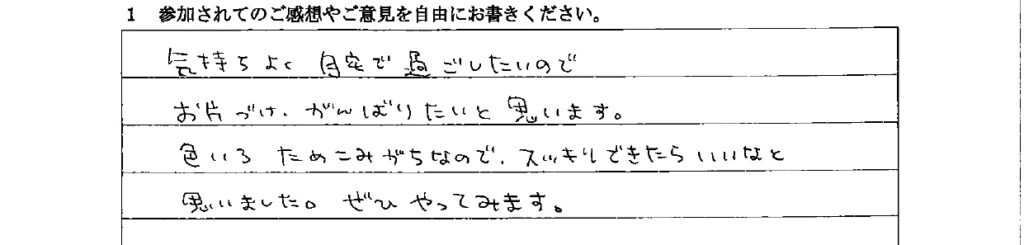 1 参加されてのご感想やご意見を自由にお書きください。
気持ちよく 自宅で過ごしたいので
お片づけ、がんばりたいと思います。
色いろ ためこみがちなので、スッキリできたらいいなと
思いました。ぜひ やってみます。